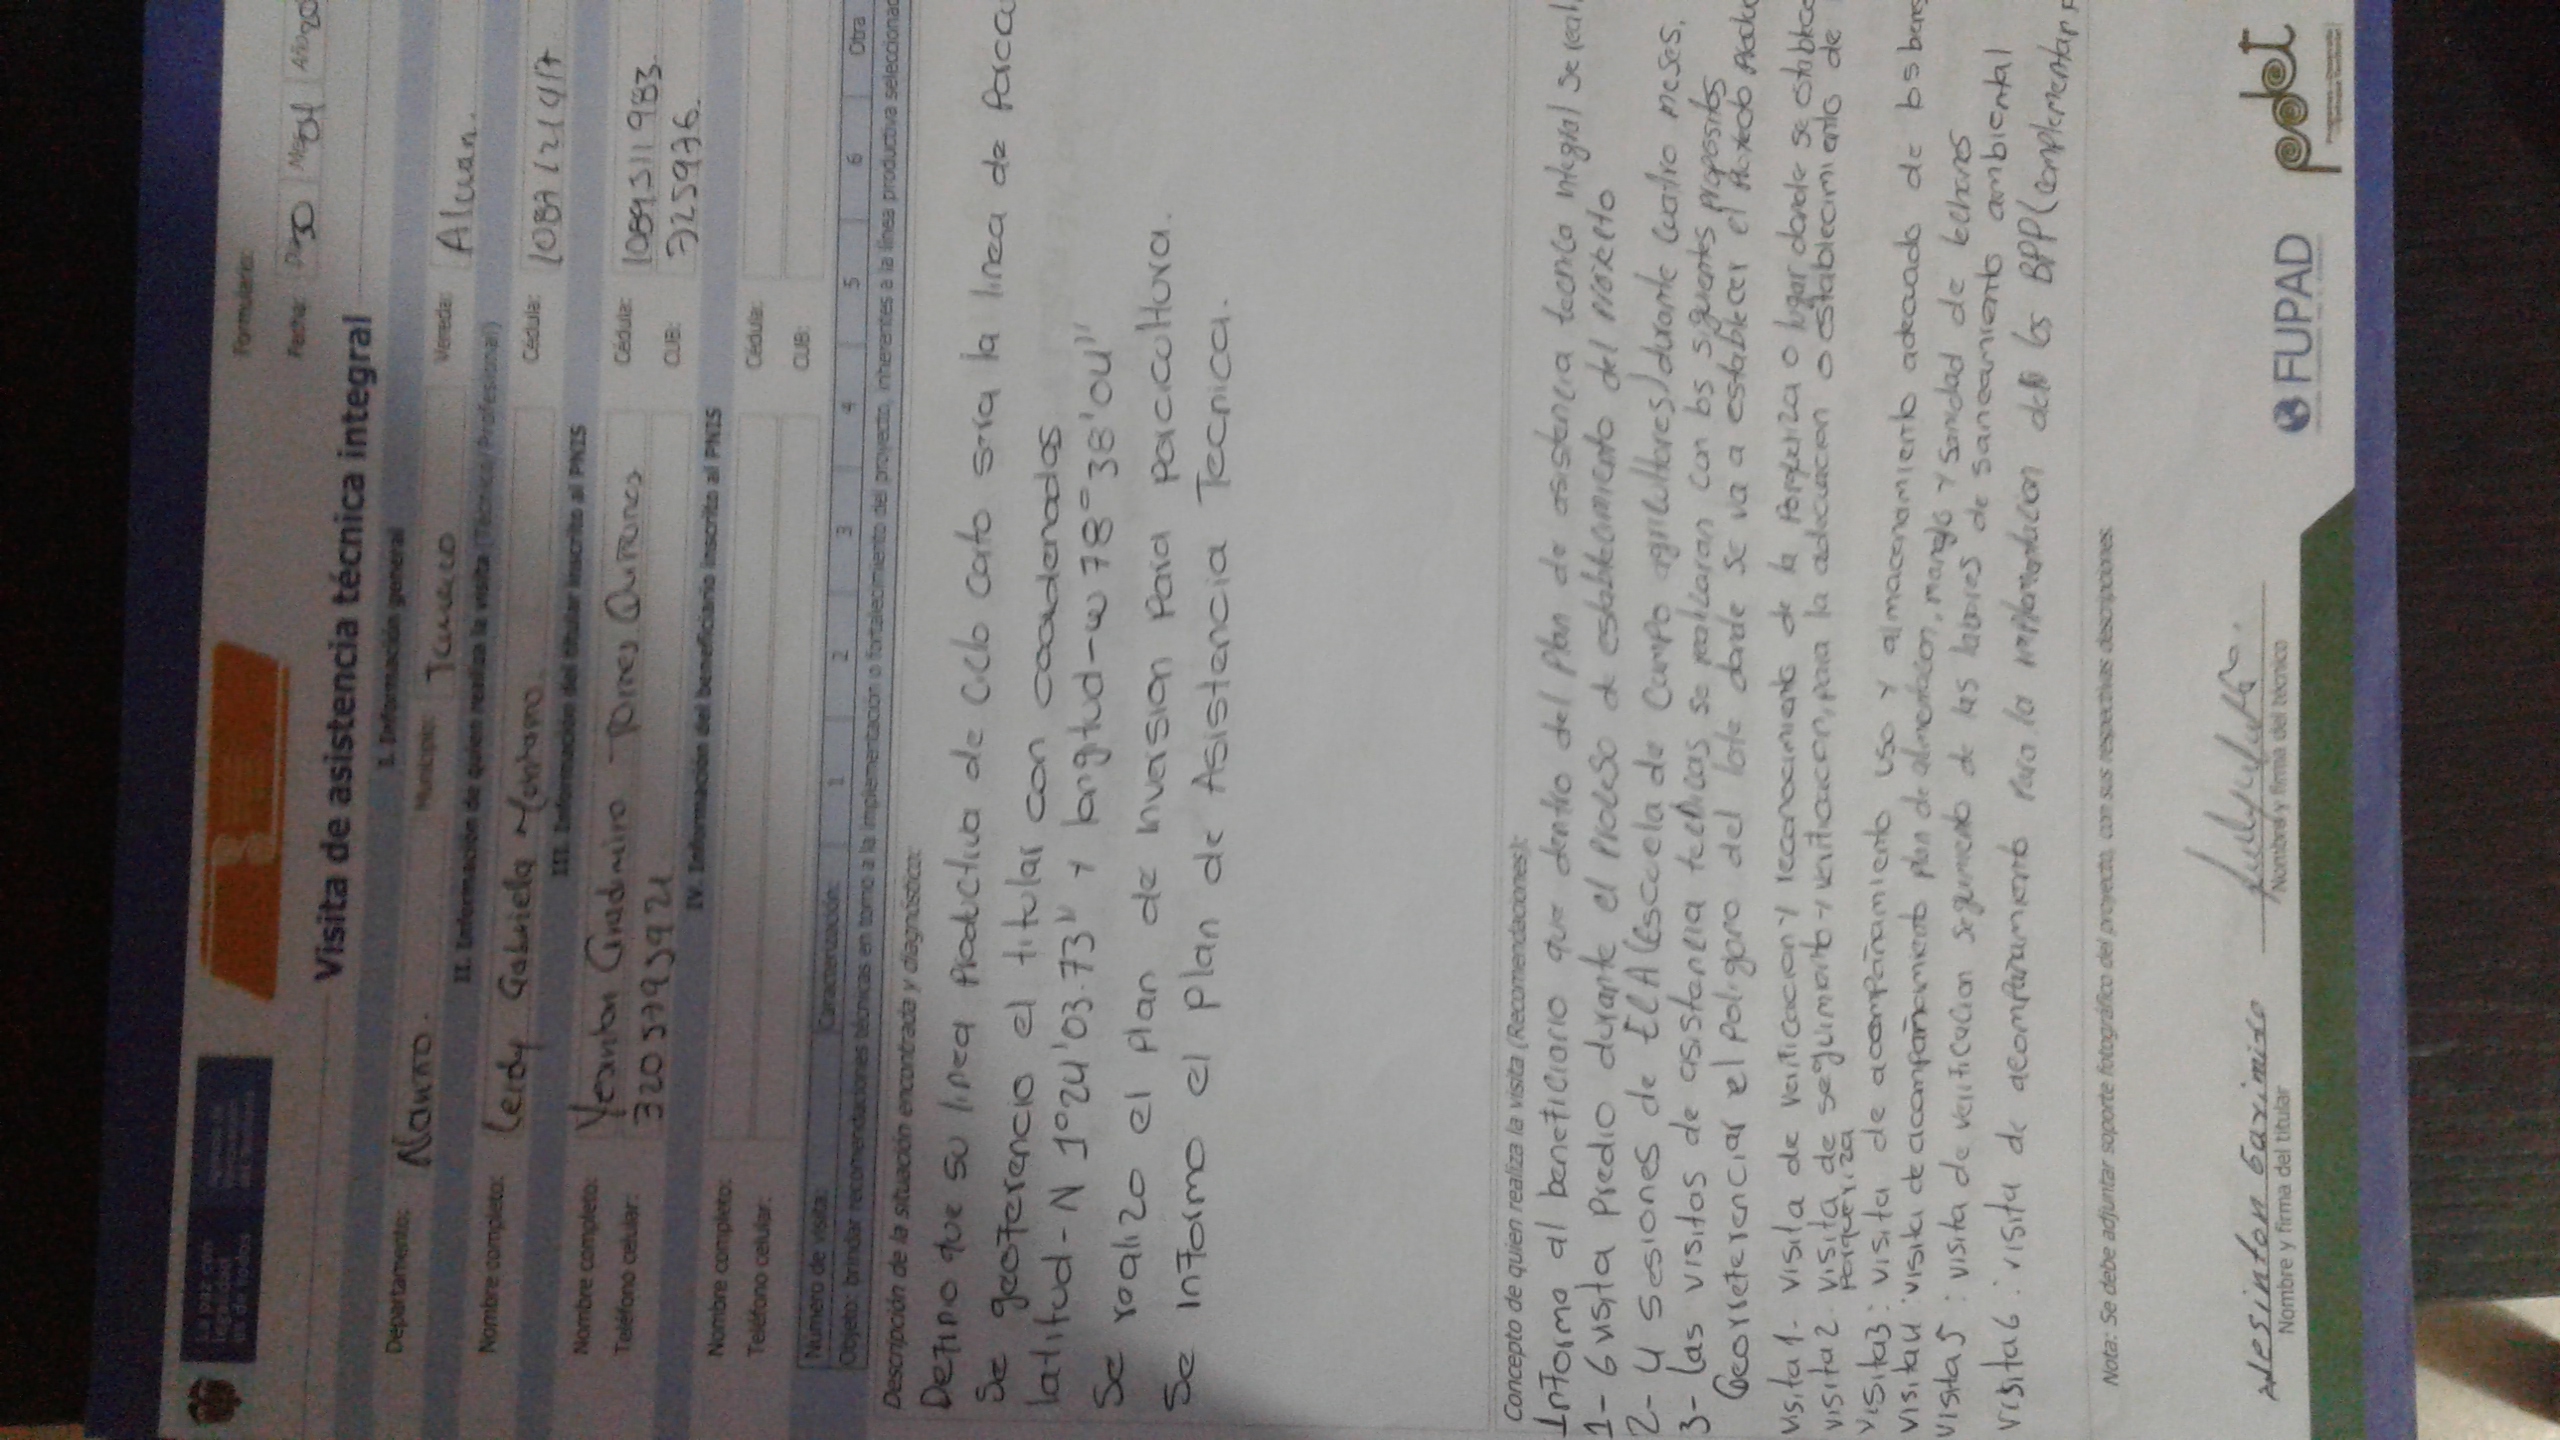 Formulario:
Fecha: Día 30 Mes 04 Año 20
Visita de asistencia técnica integral
I. Información general
Departamento: Nariño. Municipio: Tumaco Vereda: Alcuan.
II. Información de quien realiza la visita (Técnico/Profesional)
Nombre completo: Leidy Gabriela Montaño. Cédula: 1087121417
III. Información del titular inscrito al PNIS
Nombre completo: Yesinton Giradimiro Torres Quiñones Cédula: 1089311983
Teléfono celular: 3205793921 CUB: 7259976.
IV. Información del beneficiario inscrito al PNIS
Nombre completo: Cédula:
Teléfono celular: CUB:
Número de visita: Caracterización: 1 2 3 4 5 6 Otra
Objeto: brindar recomendaciones técnicas en torno a la implementación o fortalecimiento del proyecto, inherentes a la línea productiva seleccionad
Descripción de la situación encontrada y diagnóstico:
Definio que su linea Productiva de Ciclo corto seria la linea de Porcicu
Se georeferencio el titular con coordenadas
latitud-N 1°24'03.73" y longitud-w 78°38'04"
Se realizo el plan de inversion Para Porcicultura.
Se informo el plan de Asistencia Tecnica.
Concepto de quien realiza la visita (Recomendaciones):
Informo al beneficiario que dentro del Plan de asistencia tecnica integral se reali
1- 6 visita Predio durante el Proceso de establecimiento del Proyecto
2- 4 sesiones de ECA (escuela de Campo agricultores) durante cuatro meses.
3- las visitas de asistencia tecnicas se realizaran con los siguientes propositos
Georreferenciar el Poligono del lote donde se va a establecer el Proyecto Produc
visita 1- visita de verificacion y reconocimiento de la Porqueriza o lugar donde se establece
visita 2 visita de seguimiento y verificacion, para la adecuacion o establecimiento de
Porqueriza
visita3: visita de acompañamiento uso y almacenamiento adecuado de los bens
visita4: visita de acompañamiento plan de alimentacion, manejo y Sanidad de lechones
visita5: visita de verificacion seguimiento de las labores de saneamiento ambiental
visita6: visita de acompañamiento para la implementacion de los BPP (complementar P
Nota: Se debe adjuntar soporte fotográfico del proyecto, con sus respectivas descripciones.
Nombre y firma del titular
Nombre y firma del técnico
FUPAD
pdet